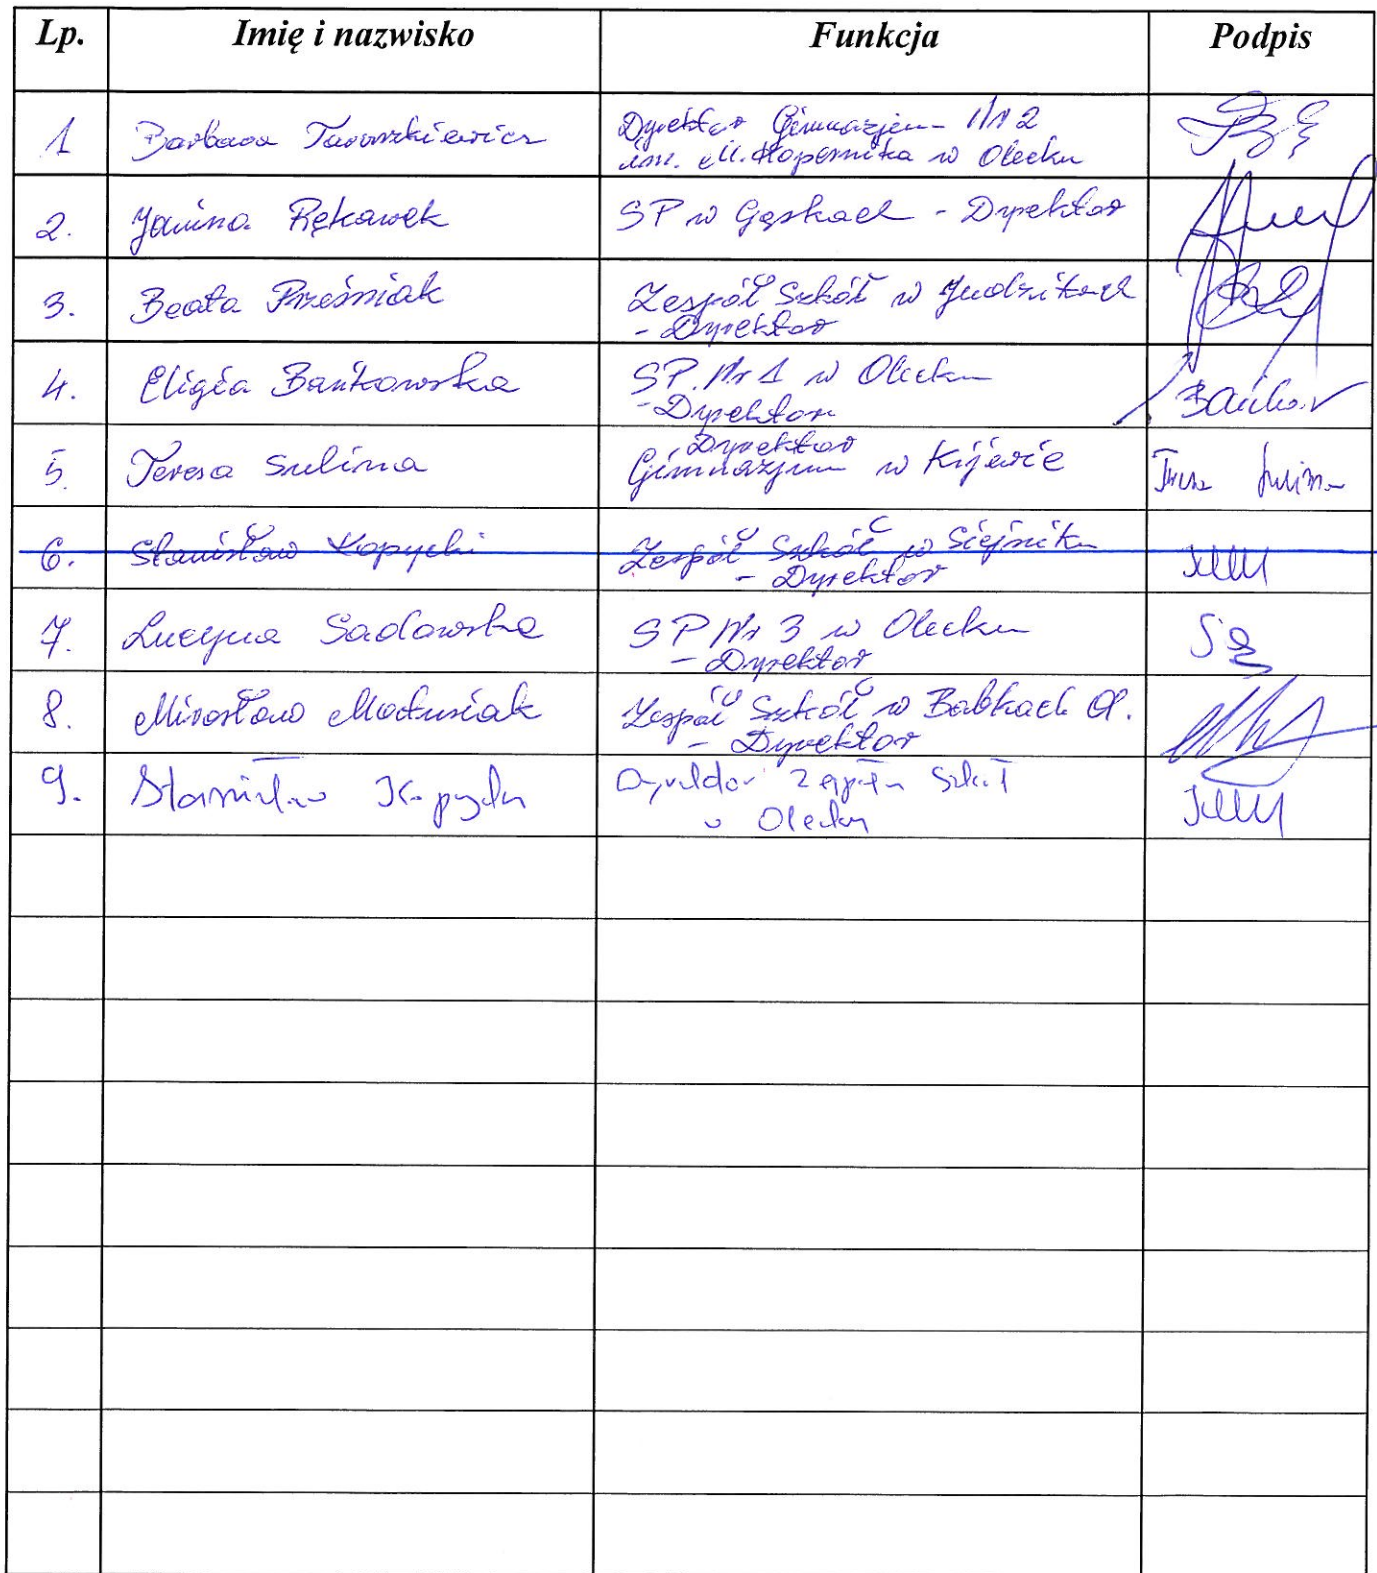 Lp. Imię i nazwisko Funkcja Podpis
1 Barbara Taraszkiewicz Dyrektor Gimnazjum Nr 2
im. M. Kopernika w Olecku
2. Janina Rękawek SP w Gąskach - Dyrektor
3. Beata Prześniak Zespół Szkół w Judzikach
- Dyrektor
4. Eligia Bańkowska SP. Nr 1 w Olecku
- Dyrektor
Dyrektor
5. Teresa Sulima Gimnazjum w Kijewie
6. Stanisław Kopycki Zespół Szkół w Siejniku
- Dyrektor
7. Lucyna Sadowska SP Nr 3 w Olecku
- Dyrektor
8. Mirosław Matusiak Zespół Szkół w Babkach Ol.
- Dyrektor
9. Stanisław Kopycki Dyrektor Zespołu Szkół
w Olecku